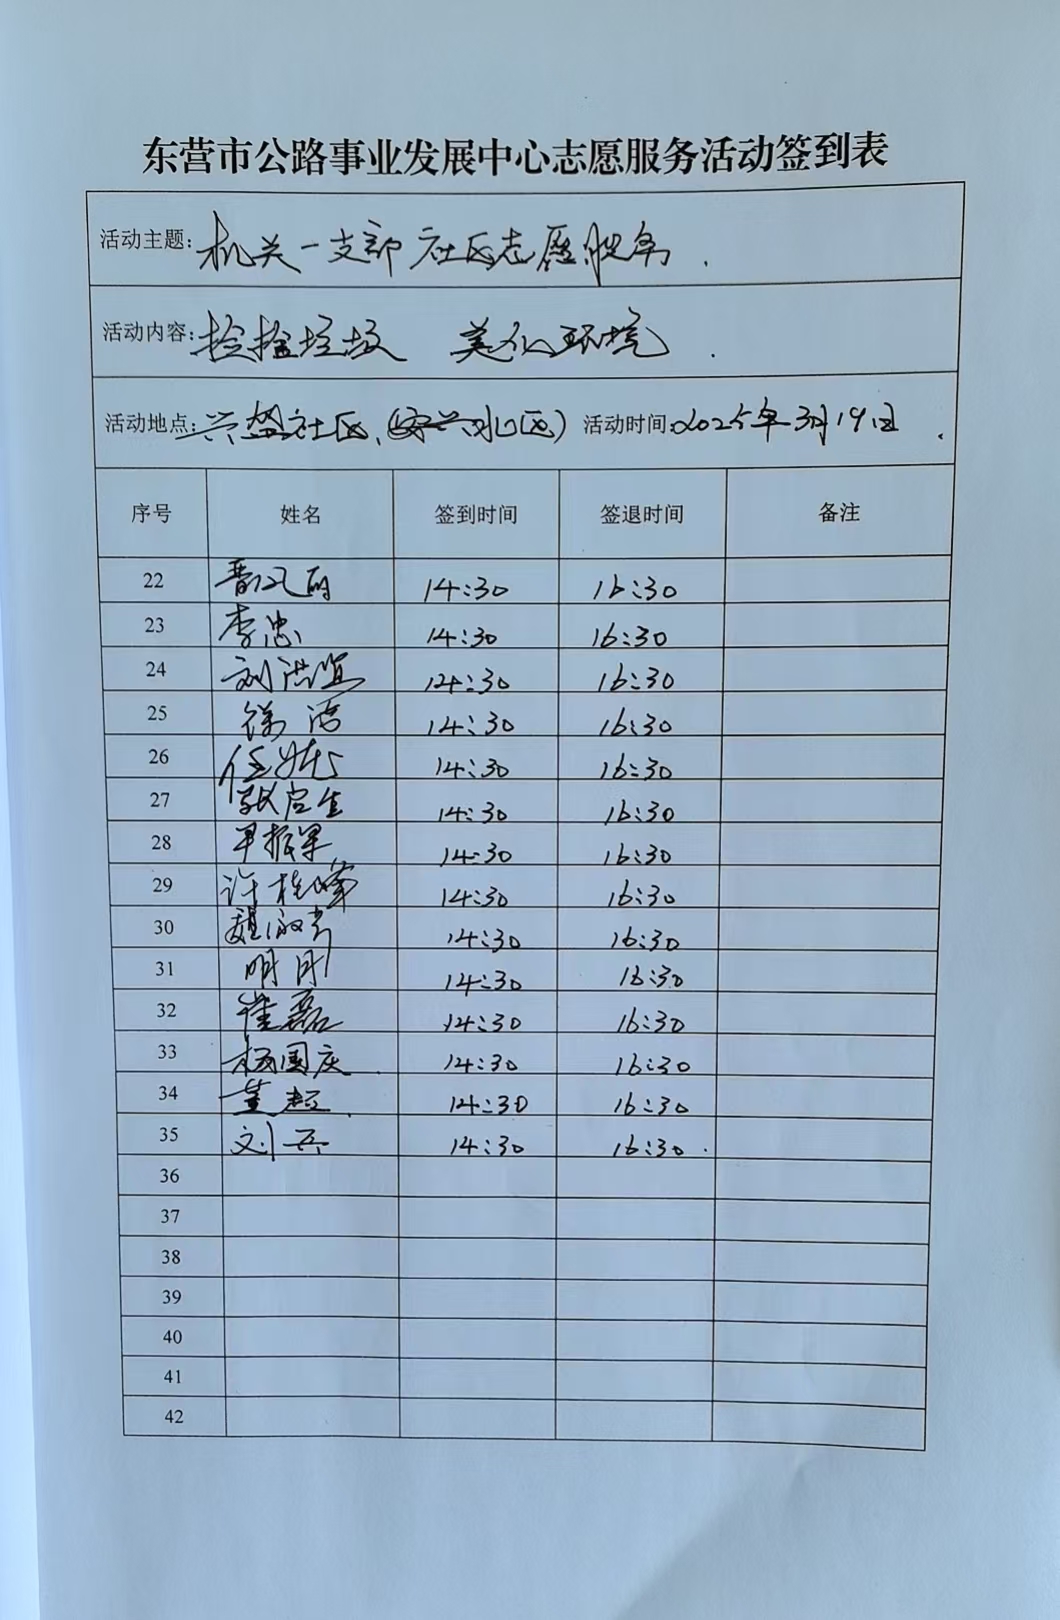 东营市公路事业发展中心志愿服务活动签到表
活动主题: 机关一支部社区志愿服务.
活动内容: 捡拾垃圾 美化环境.
活动地点: 兴盘社区(安兴北区) 活动时间: 2025年3月19日.
序号 姓名 签到时间 签退时间 备注
22 14:30 16:30
23 李忠 14:30 16:30
24 14:30 16:30
25 徐洁 14:30 16:30
26 14:30 16:30
27 14:30 16:30
28 14:30 16:30
29 许桂峰 14:30 16:30
30 14:30 16:30
31 明刚 14:30 16:30
32 崔磊 14:30 16:30
33 杨国庆 14:30 16:30
34 董超 14:30 16:30
35 刘兵 14:30 16:30
36
37
38
39
40
41
42